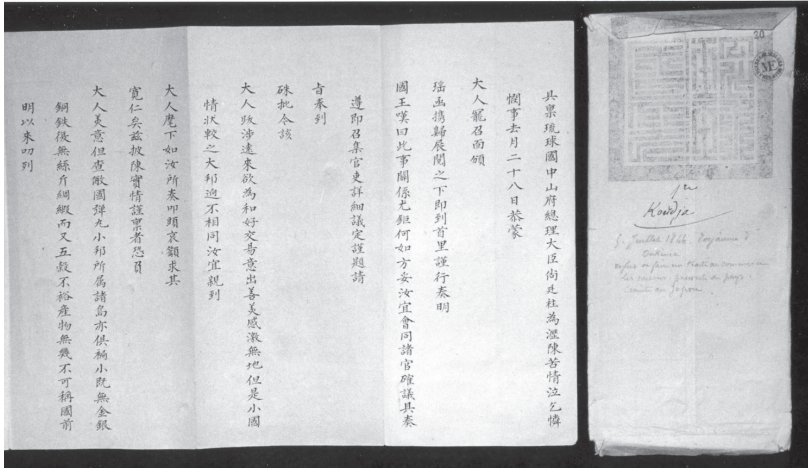 具稟琉球國中山府總理大臣尙廷柱為瀝陳苦情泣乞憐
憫事去月二十八日恭蒙
大人寵召面頒
瑤函携歸展閱之下即到首里謹行奏明
國王嘆曰此事關係尤鉅何如方妥汝宜會同諸官確議具奏
遵即召集官吏詳細議定謹題請
旨奉到
硃批令該
大人跋涉遠來欲為和好交易意出善美感激無地但是小國
情狀較之大邦逈不相同汝宜親到
大人麾下如汝所奏叩頭哀籲求其
寬仁矣茲披陳實情謹稟者恐
大人美意但查敝國彈丸小邦所屬諸島亦俱褊小既無金銀
銅鉄復無絲斤綢緞而又五穀不裕產物無幾不可稱國前
明以來叨列
20
Koudja
Juillet 1844. Royaume
refus
les raisons pauvreté du pays
Japon